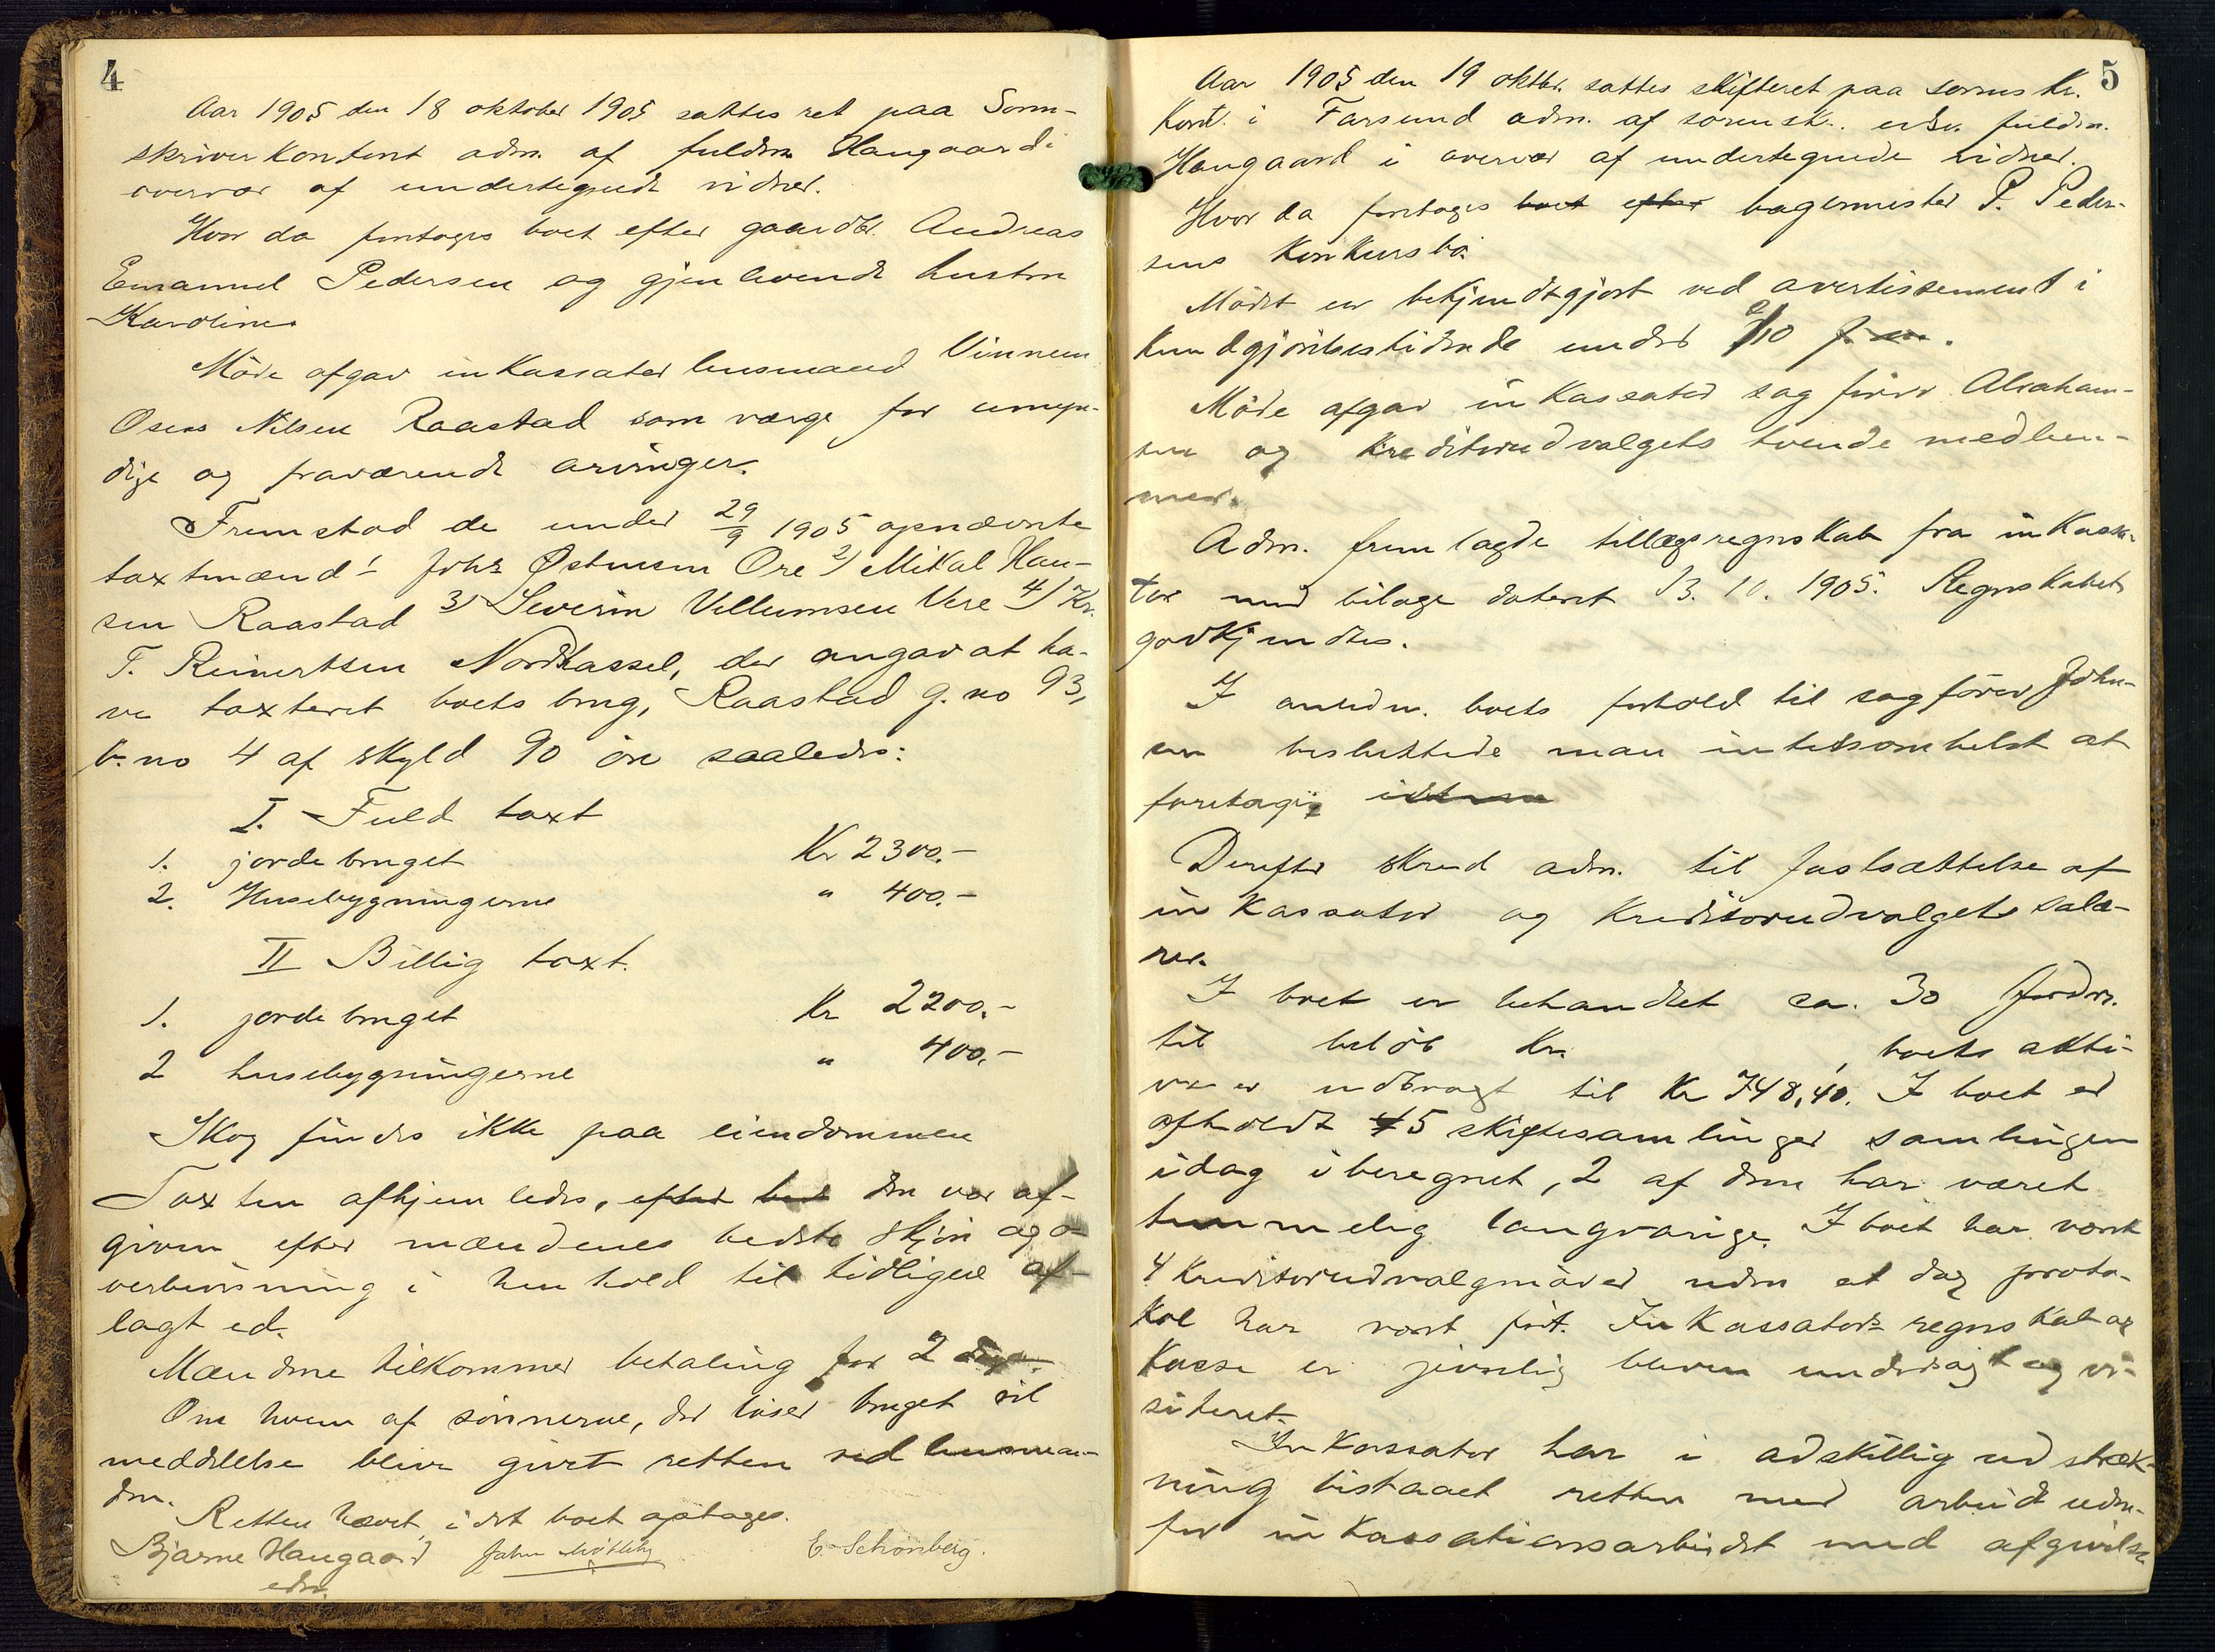 4
Aar 1905 den 18 oktober 1905 sattes ret paa Sorn-
skriverkontoret adm. af fuldm. Haugaard i
overvær af undertegnede vidner.
Hvor da foretoges boet efter gaardbr. Andreas
Emanuel Pedersen og gjenlevende hustru
Karoline.
Möde afgav inkassator lensmand Vinnem
Oseas Nilsen Raastad som værge for umyn-
dige og fraværende arvinger.
Fremstod de under 29/9 1905 opnævnte
taxtmænd 1 Johs Østensen Ore 2) Mikal Han-
sen Raastad 3) Severin Villumsen Vere 4) Kr.
T. Reinertsen Nordhassel, der angav at ha-
ve taxteret boets brug, Raastad g. no 93,
b. no 4 af skyld 90 öre saaledes:
I. Fuld taxt
1. jordebruget Kr 2300.-
2. Husebygningerne " 400.-
II Billig taxt.
1. jordebruget Kr 2200.-
2 husebygningerne " 400.-
Skog findes ikke paa eiendommen
Taxten afhjemledes, efter den var af-
given efter mændenes bedste skjön og o-
verbevisning i henhold til tidligere af-
lagt ed.
Mændene tilkommer betaling for 2 dage.
Om hvem af sönnerne, der löser bruget vil
meddelelse blive givet retten ved lensman-
den.
Retten hævet, idet boet optages.
Bjarne Haugaard E. Schönberg.
edsv.
5
Aar 1905 den 19 oktbr. sattes skifteret paa sornskr.
kont. i Farsund adm. af sorensk. edsv. fuldm.
Haugaard i overvær af undertegnede vidner.
Hvor da foretoges boet efter bagermester P. Peder-
sens konkursbo.
Mödet er bekjendtgjort ved avertissement i
kundgjörelsestidende under 2/10
Möde afgav inkassator sagförer Abraham-
sen og kreditorudvalgets tvende medlem-
mer.
Adm. fremlagde tillægsregnskab fra inkassa-
tor med bilage dateret 13. 10. 1905. Regnskabet
godkjendtes.
I anledn. boets forhold til sagförer John-
sen besluttede man intetsomhelst at
foretage
Derefter skred adm. til fastsættelse af
inkassator og kreditorudvalgets salæ-
rer.
I boet er behandlet ca. 30 fordr.
til belöb Kr. , boets akti-
va er udbragt til Kr 748,40. I boet er
afholdt 5 skiftesamlinger samlingen
idag iberegnet, 2 af dem har været
temmelig langvarige. I boet har været
4 kreditorudvalgmöder uden at dog proto-
kol har været fört. Inkassators regnskab og
kasse er jevnlig bleven undersögt og vi-
siteret.
Inkassator har i adskillig udstræk-
ning bistaaet retten med arbeide uden-
for inkassationsarbeidet med afgivelse